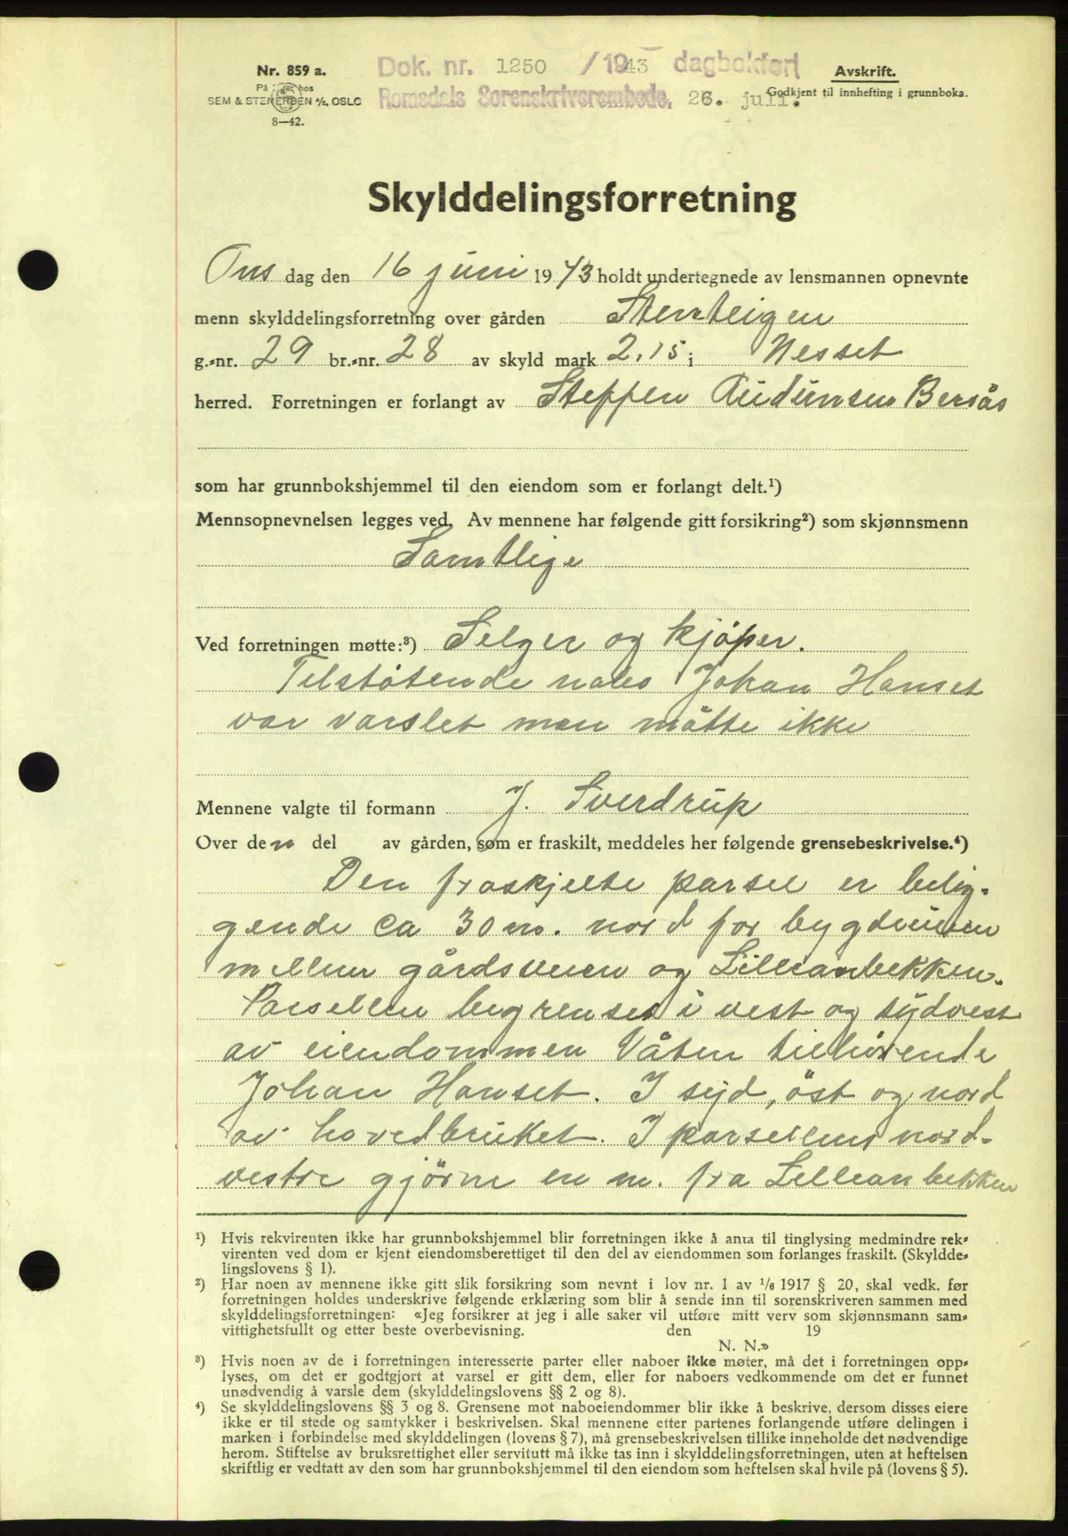 Nr. 859 a.
På lager hos
SEM & STENERSEN A/S, OSLO
8—42.
Dok. nr. 1250 / 1943 dagbokført
Romsdals Sorenskriverembede, 26. juli.
Avskrift.
Godkjent til innhefting i grunnboka.
Skylddelingsforretning
Ons dag den 16 juni 1943 holdt undertegnede av lensmannen opnevnte
menn skylddelingsforretning over gården Stenteigen
g.-nr. 29 br.-nr. 28 av skyld mark 2.15 i Nesset
herred. Forretningen er forlangt av Steffen Audunsen Bersås
som har grunnbokshjemmel til den eiendom som er forlangt delt.¹)
Mennsopnevnelsen legges ved. Av mennene har følgende gitt forsikring²) som skjønnsmenn
Samtlige
Ved forretningen møtte:³) Selger og kjøper.
Tilstøtende nabo Johan Hanset
var varslet men måtte ikke
Mennene valgte til formann J. Sverdrup
Over den del av gården, som er fraskilt, meddeles her følgende grensebeskrivelse.⁴)
Den fraskjelte parsel er belig-
gende ca 30 m. nord for bygdeveien
mellem gårdsveien og Lilleanbekken.
Parsellen begrenses i vest og sydvest
av eiendommen Våten tilhørende
Johan Hanset. I syd, öst og nord
av hovedbruket. I parsellens nord-
vestre gjörne en m. fra Lilleanbekken
¹) Hvis rekvirenten ikke har grunnbokshjemmel blir forretningen ikke å anta til tinglysing medmindre rek-
virenten ved dom er kjent eiendomsberettiget til den del av eiendommen som forlanges fraskilt. (Skyldde-
lingslovens § 1).
²) Har noen av mennene ikke gitt slik forsikring som nevnt i lov nr. 1 av 1/6 1917 § 20, skal vedk. før
forretningen holdes underskrive følgende erklæring som blir å sende inn til sorenskriveren sammen med
skylddelingsforretningen: «Jeg forsikrer at jeg i alle saker vil utføre mitt verv som skjønnsmann sam-
vittighetsfullt og etter beste overbevisning. den 19
N. N.»
³) Hvis noen av de i forretningen interesserte parter eller naboer ikke møter, må det i forretningen opp-
lyses, om det er godtgjort at varsel er gitt dem, eller for naboers vedkommende om det er funnet
unødvendig å varsle dem (skylddelingslovens §§ 2 og 8).
⁴) Se skylddelingslovens §§ 3 og 8. Grensene mot naboeiendommer blir ikke å beskrive, dersom disses eiere
ikke er til stede og samtykker i beskrivelsen. Skal mennene etter partenes forlangende utføre delingen i
marken i forbindelse med skylddelingen (lovens § 7), må grensebeskrivelsen tillike inneholde det nødvendige
herom. Stiftelse av bruksrettighet eller servitutt må ikke tas inn i skylddelingsforretningen, uten at heftelsen
skriftlig er vedtatt av den som har grunnbokshjemmel til den eiendom som heftelsen skal hvile på (lovens § 5).